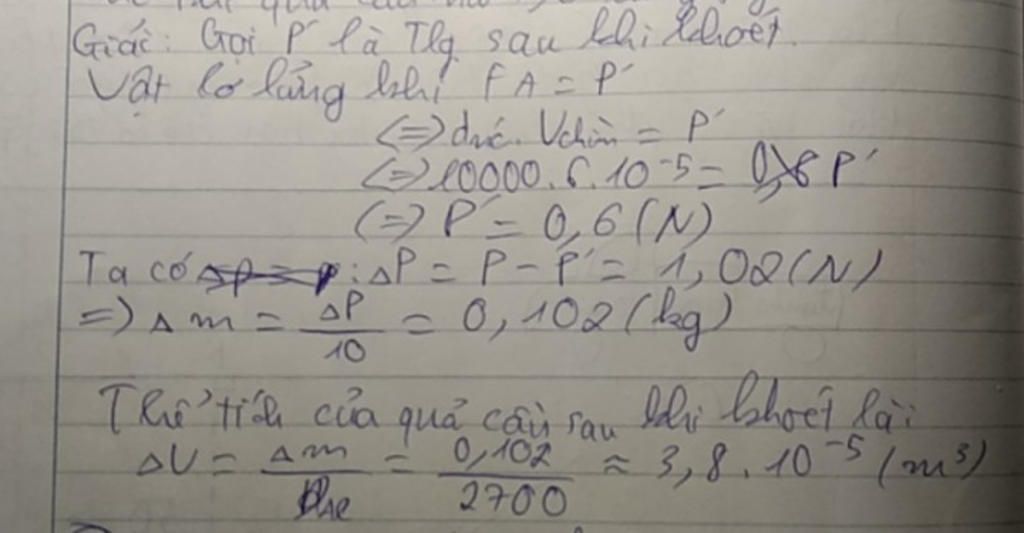 Giải: Gọi P' là Tlg sau khi khoét.
Vật lơ lửng khi FA = P'
<=> dnc. Vchìm = P'
<=> 10000. 6. 10^-5 = P'
<=> P' = 0,6 (N)
Ta có : ΔP = P - P' = 1,02 (N)
=> Δm = ΔP/10 = 0,102 (kg)
Thể tích của quả cầu sau khi khoét là:
ΔV = Δm/DAl = 0,102/2700 ≈ 3,8 . 10^-5 (m³)